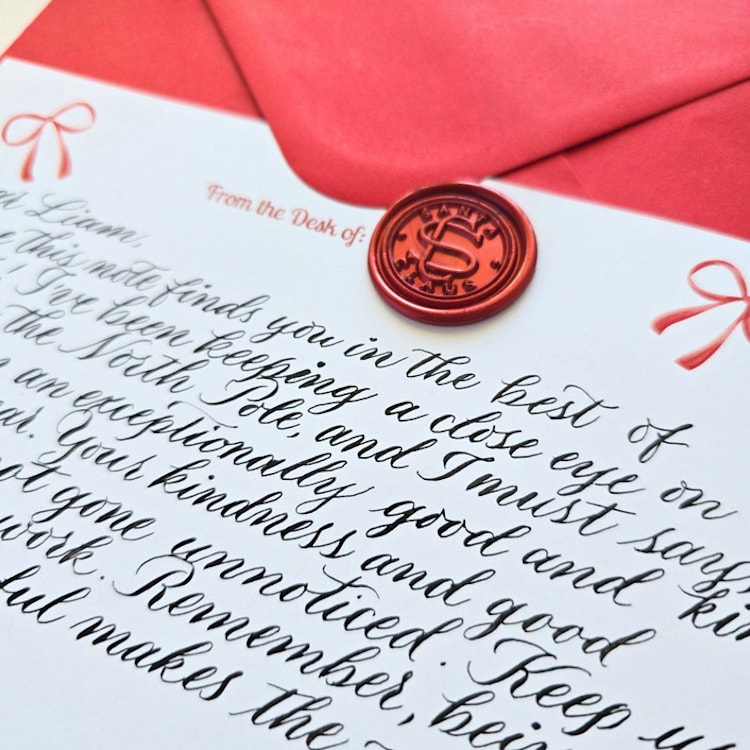 From the Desk of:
SANTA
CLAUS
Liam,
this note finds you in the best of
I've been keeping a close eye on
the North Pole, and I must say,
an exceptionally good and kin
ar. Your kindness and good
not gone unnoticed. Keep
work. Remember, bein
ful makes the